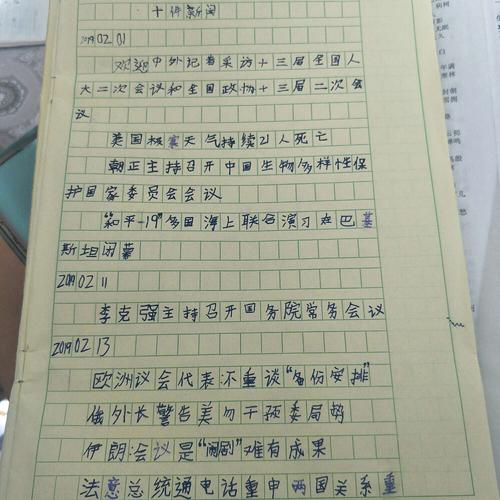 十件新闻
2019 02 01
欢迎中外记者采访十三届全国人
大二次会议和全国政协十三届二次会
议
美国极寒天气持续21人死亡
韩正主持召开中国生物多样性保
护国家委员会会议
"和平-19"多国海上联合演习在巴基
斯坦闭幕
2019 02 11
李克强主持召开国务院常务会议
2019 02 13
欧洲议会代表:不重谈"备份安排"
俄外长警告美勿干预委局势
伊朗:会议是"闹剧"难有成果
法意总统通电话重申两国关系重